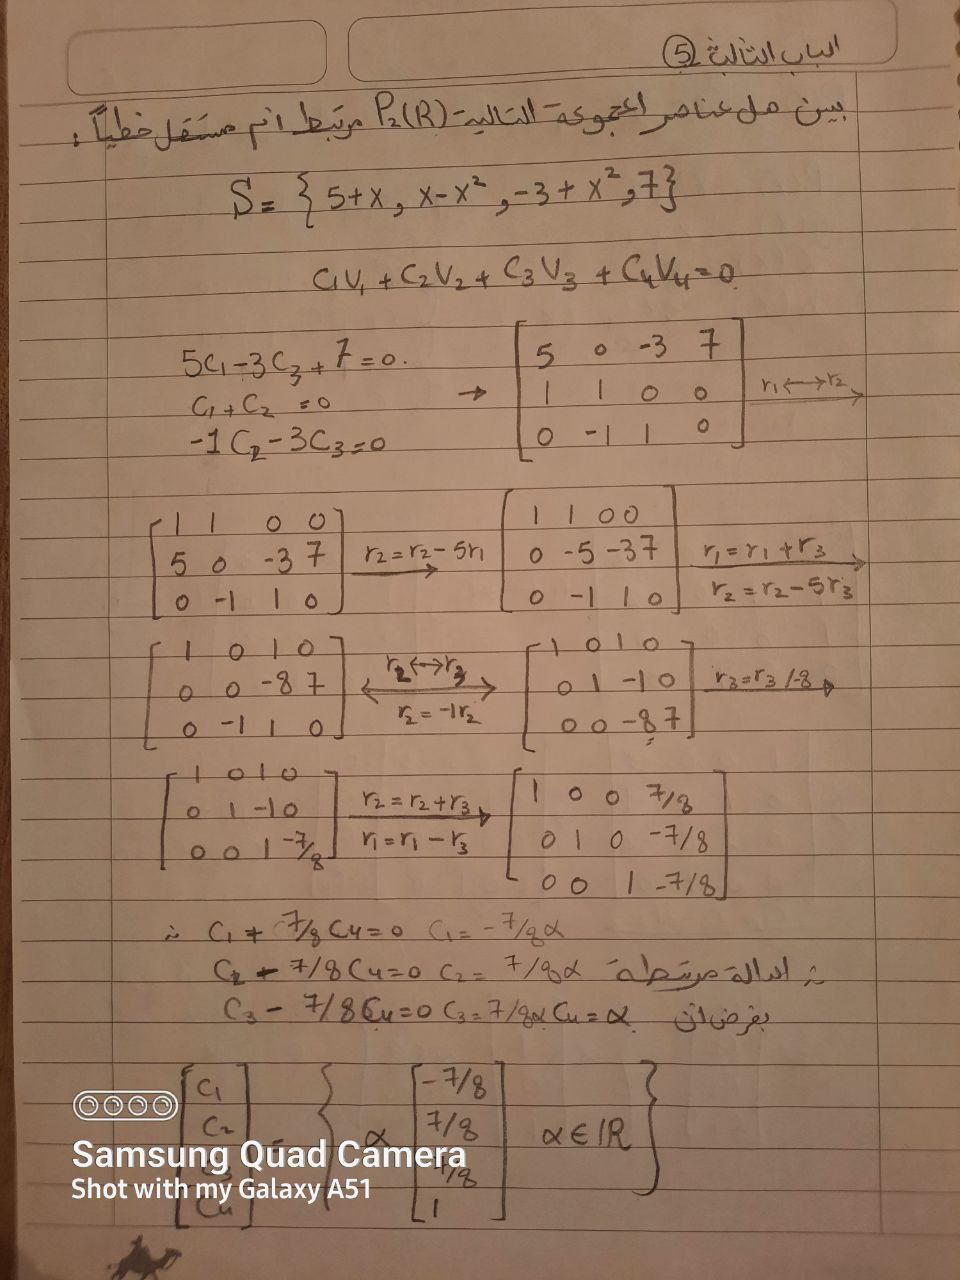 الباب الثالثة ⑤
بين هل عناصر المجموعة التالية P₂(R) مرتبط ام مستقل خطياً.
S = { 5+x, x-x², -3+x², 7}
C₁V₁ + C₂V₂ + C₃V₃ + C₄V₄ = 0
5C₁-3C₃+7=0.
C₁+C₂ =0
-1C₂-3C₃=0
→
5 0 -3 7
1 1 0 0
0 -1 1 0
r₁↔r₂
1 1 0 0
5 0 -3 7
0 -1 1 0
r₂=r₂-5r₁
1 1 0 0
0 -5 -3 7
0 -1 1 0
r₁=r₁+r₃
r₂=r₂-5r₃
1 0 1 0
0 0 -8 7
0 -1 1 0
r₂↔r₃
r₂=-1r₂
1 0 1 0
0 1 -1 0
0 0 -8 7
r₃=r₃/-8
1 0 1 0
0 1 -1 0
0 0 1 -7/8
r₂=r₂+r₃
r₁=r₁-r₃
1 0 0 7/8
0 1 0 -7/8
0 0 1 -7/8
C₁+ 7/8C₄=0 C₁=-7/8α
C₂- 7/8C₄=0 C₂= 7/8α الدالة مرتبطة
C₃- 7/8C₄=0 C₃=7/8α C₄=α بفرض ان
C₁
C₂
C₃
C₄
=
α
-7/8
7/8
7/8
1
α∈IR
Samsung Quad Camera
Shot with my Galaxy A51